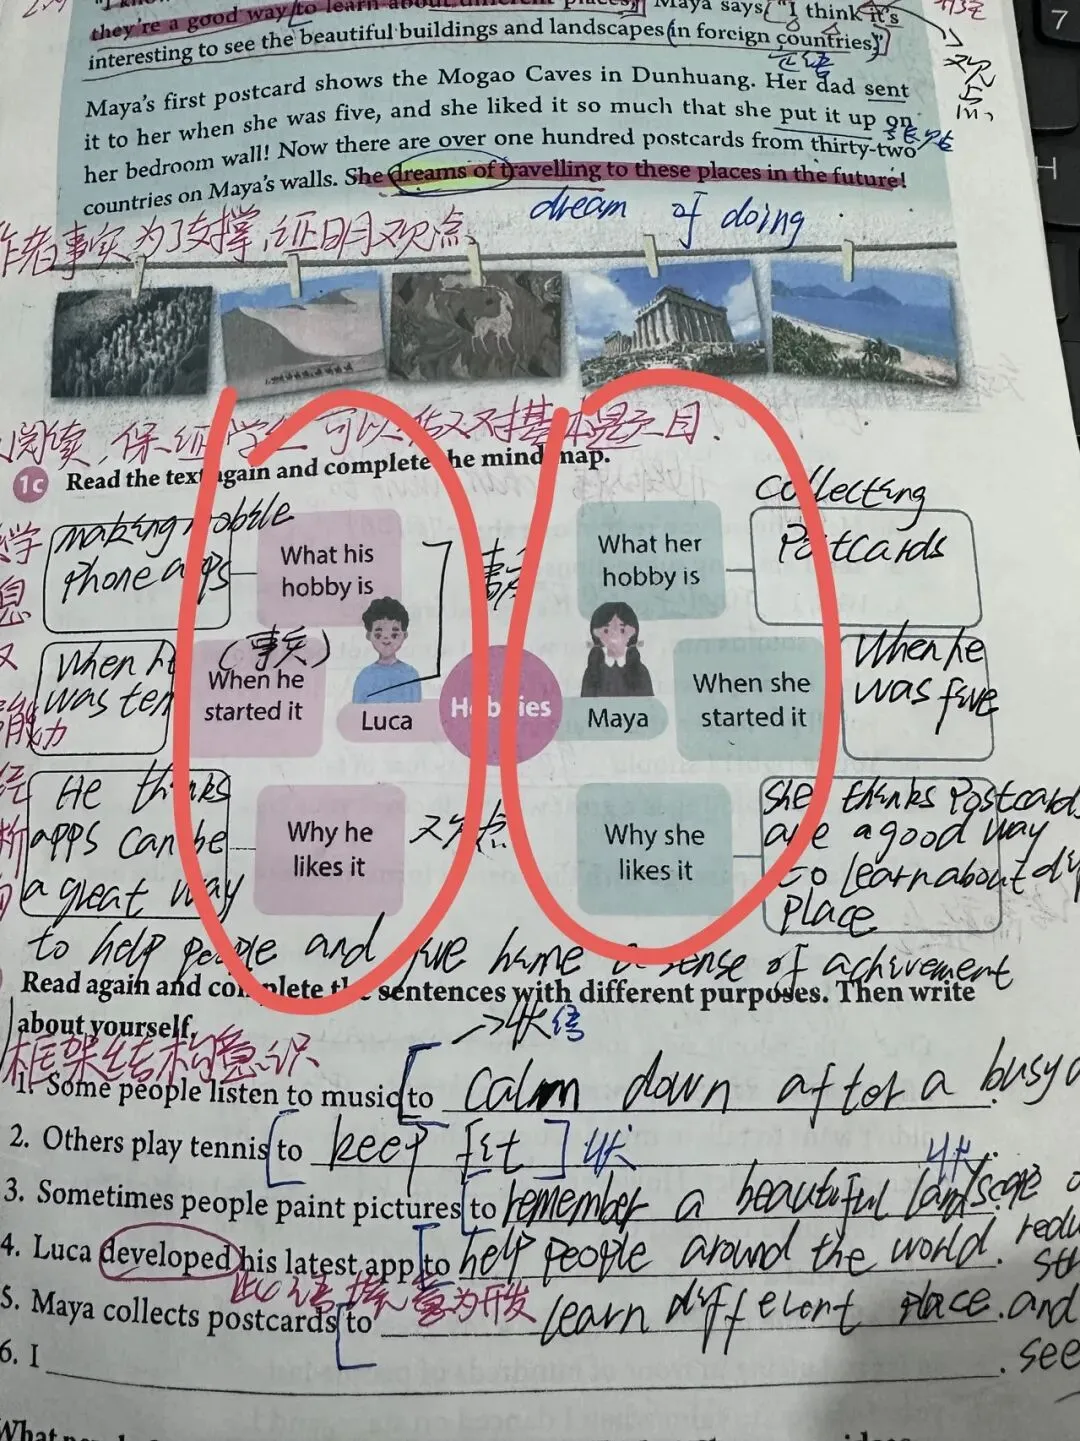 they're a good way to learn about different places." Maya says, "I think it's
interesting to see the beautiful buildings and landscapes in foreign countries."
Maya's first postcard shows the Mogao Caves in Dunhuang. Her dad sent
it to her when she was five, and she liked it so much that she put it up on
her bedroom wall! Now there are over one hundred postcards from thirty-two
countries on Maya's walls. She dreams of travelling to these places in the future!
dream of doing
事实为了支撑,证明观点
阅读,保证学生可以做对基本题目.
1c Read the text again and complete the mind map.
making mobile
phone apps
What his
hobby is
What her
hobby is
collecting
Postcards
When he
was ten
(事实)
When he
started it
Luca
Hobbies
Maya
When she
started it
When he
was five
He thinks
apps can be
a great way
Why he
likes it
观点
Why she
likes it
she thinks Postcards
are a good way
to learn about
place
to help people and give hime a sense of achivement
Read again and complete the sentences with different purposes. Then write
about yourself.
框架结构意识
1. Some people listen to music to calm down after a busy
2. Others play tennis to keep fit 状
3. Sometimes people paint pictures to remember a beautiful landscape
4. Luca developed his latest app to help people around the world.
5. Maya collects postcards to learn different place. and
see
6. I